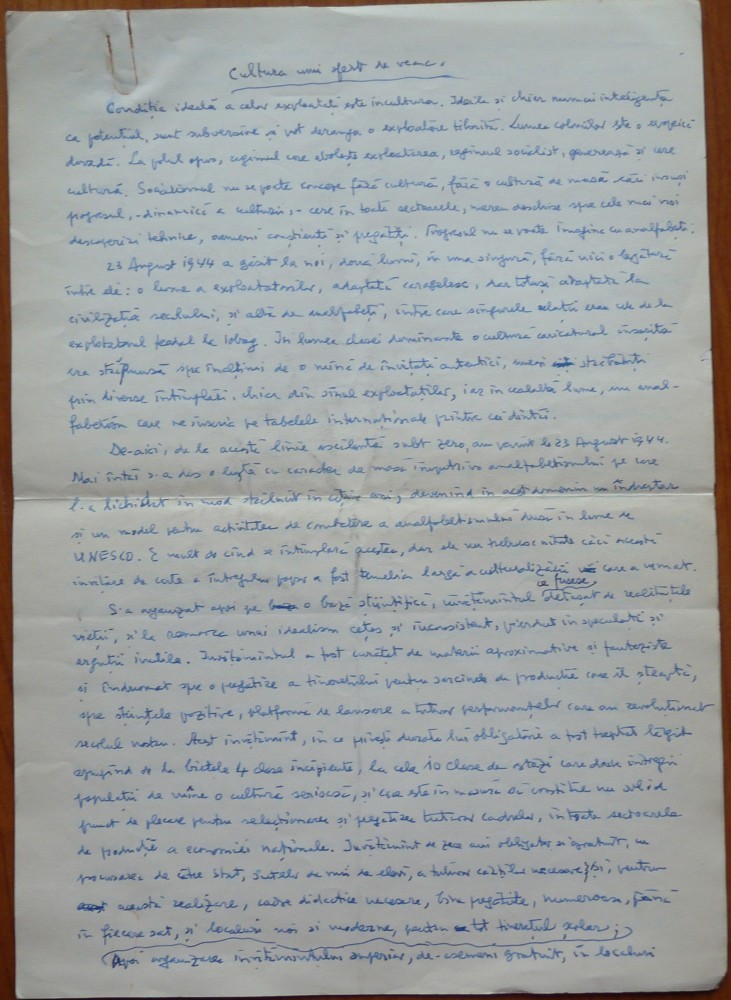 Cultura unui sfert de veac.
Condiția ideală a celor exploatați este incultura. Ideile și chiar numai inteligența
ca potențial, sunt subversive și pot deranja o exploatare tihnită. Lumea coloniilor este o
dovadă. La polul opus, regimul care abolește exploatarea, regimul socialist, generează și cere
cultură. Socialismul nu se poate concepe fără cultură, fără o cultură de masă căci însuși
progresul, - dinamică a culturii, - cere în toate sectoarele, mereu deschise spre cele mai noi
descoperiri tehnice, oameni conștienți și pregătiți. Progresul nu se poate imagina cu analfabeți.
23 August 1944 a găsit la noi, două lumi, în una singură, fără nici o legătură
între ele: o lume a exploatatorilor, adaptată dar totuși adaptată la
civilizația secolului, și alta de analfabeți, între care singurele relații erau cele de la
exploatatorul feudal la iobag. În lumea clasei dominante o cultură caricatural însușită
era străpunsă spre înălțimi de o mînă de învățați autentici, uneori străbătuți
prin diverse întîmplări, chiar din sînul exploatatilor, iar în cealaltă lume, un anal-
fabetism care ne înscria pe tabelele internaționale printre cei dintîi.
De-aici, de la această linie oscilantă subt zero, am pornit la 23 August 1944.
Mai întîi s-a dus o luptă cu caracter de masă împotriva analfabetismului pe care
l-a lichidat în mod strălucit în cîțiva ani, devenind în acest domeniu un îndreptar
și un model pentru activitatea de combatere a analfabetismului dusă în lume de
UNESCO. E mult de cînd se întîmplară acestea, dar ele nu trebuesc uitate căci această
învățare de carte a întregului popor a fost temelia largă a culturalizării care a urmat.
S-a organizat apoi pe o bază științifică, învățămîntul ce fusese detașat de realitățile
vieții, și la remorca unui idealism cețos și inconsistent, pierdut în speculații și
ergotări inutile. Învățămîntul a fost curățat de materii aproximative și fanteziste
și îndrumat spre o pregătire a tineretului pentru sarcinile de producție care îl așteaptă,
spre științele pozitive, platformă de lansare a tuturor performanțelor care au revoluționat
secolul nostru. Acest învățămînt, în ce privește durata lui obligatorie a fost treptat lărgit
ajungînd de la bietele 4 clase incipiente, la cele 10 clase de astăzi care dau întregii
populații de mîine o cultură serioasă, și care este în măsură să constitue un solid
punct de plecare pentru selecționarea și pregătirea tuturor cadrelor, în toate sectoarele
de producție a economiei naționale. Învățămînt de zece ani obligator și gratuit, cu
procurarea de către stat, sutelor de mii de elevi, a tuturor cărților necesare și, pentru
această realizare, cadre didactice necesare, bine pregătite, numeroase, pînă
în fiecare sat, și localuri noi și moderne, pentru tot tineretul școlar;
Apoi organizarea învățămîntului superior, de-asemeni gratuit, în localuri